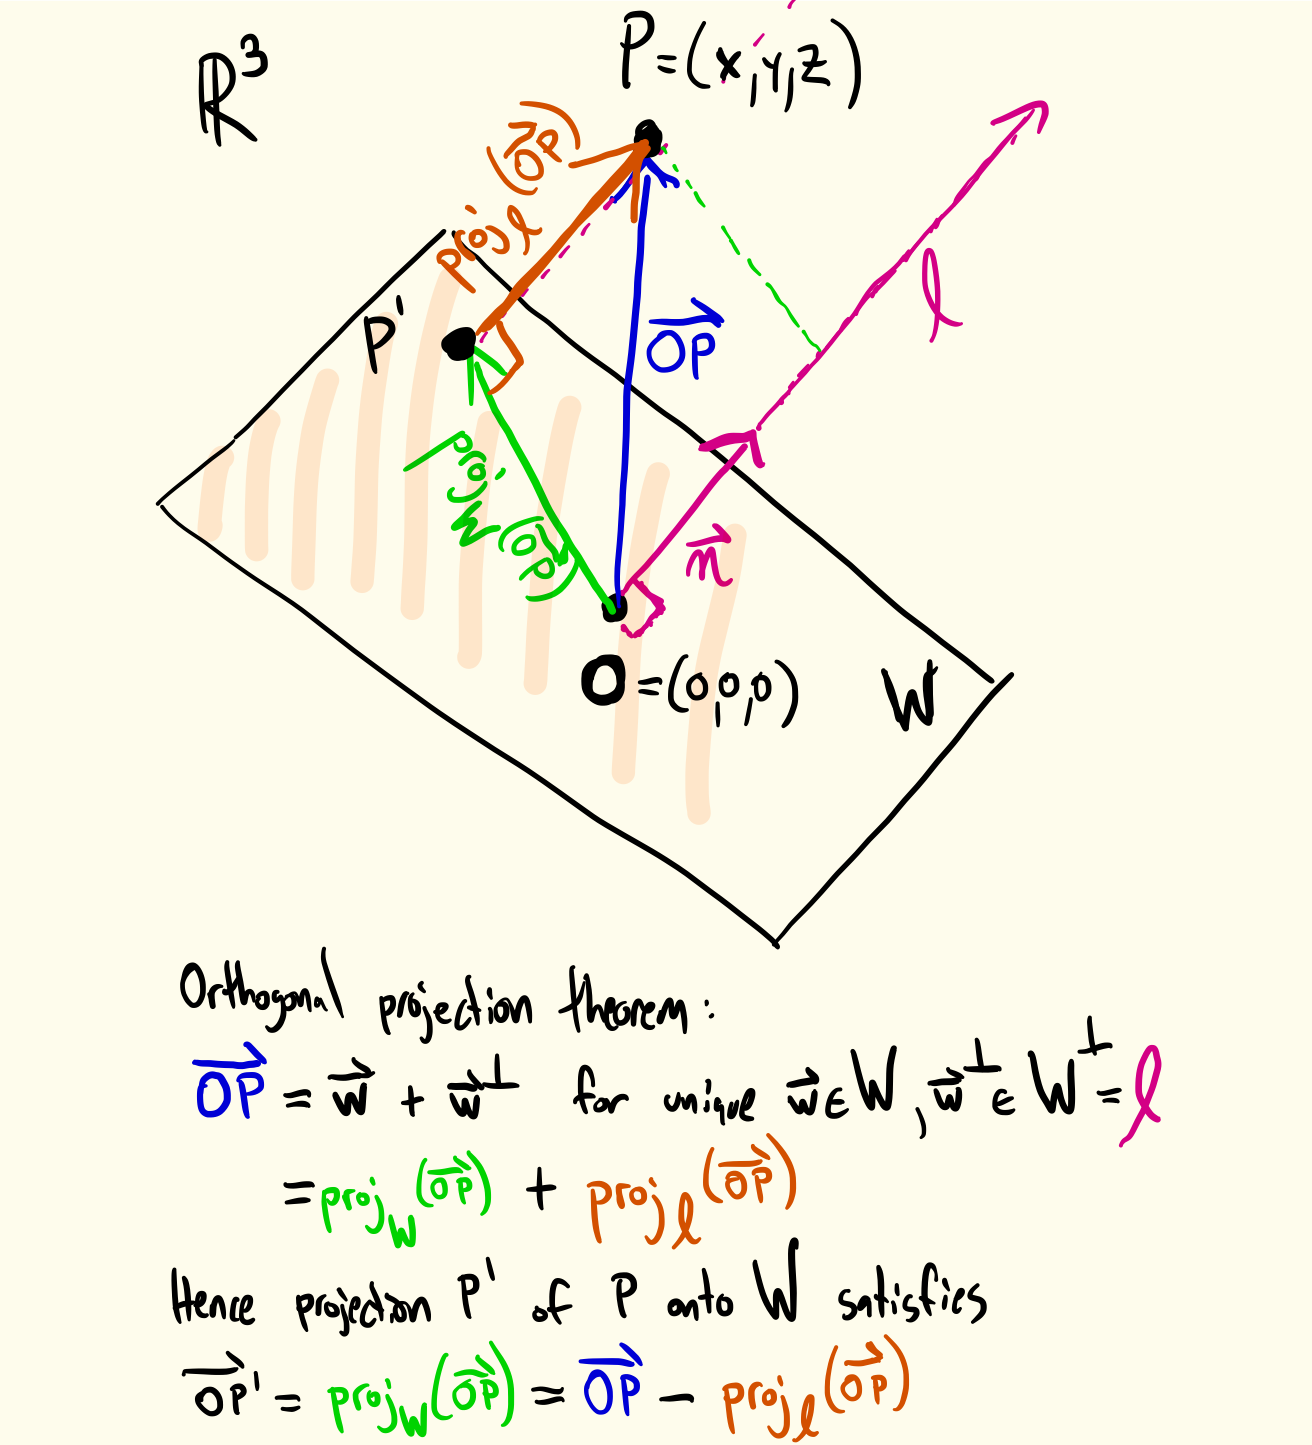 ℝ³
P=(x,y,z)
proj_ℓ(\overrightarrow{OP})
P'
ℓ
\overrightarrow{OP}
proj_W(\overrightarrow{OP})
\vec{n}
O=(0,0,0)
W
Orthogonal projection theorem:
\overrightarrow{OP} = \vec{w} + \vec{w}^⊥ for unique \vec{w}∈W, \vec{w}^⊥∈W^⊥=ℓ
=proj_W(\overrightarrow{OP}) + proj_ℓ(\overrightarrow{OP})
Hence projection P' of P onto W satisfies
\overrightarrow{OP'} = proj_W(\overrightarrow{OP}) = \overrightarrow{OP} - proj_ℓ(\overrightarrow{OP})